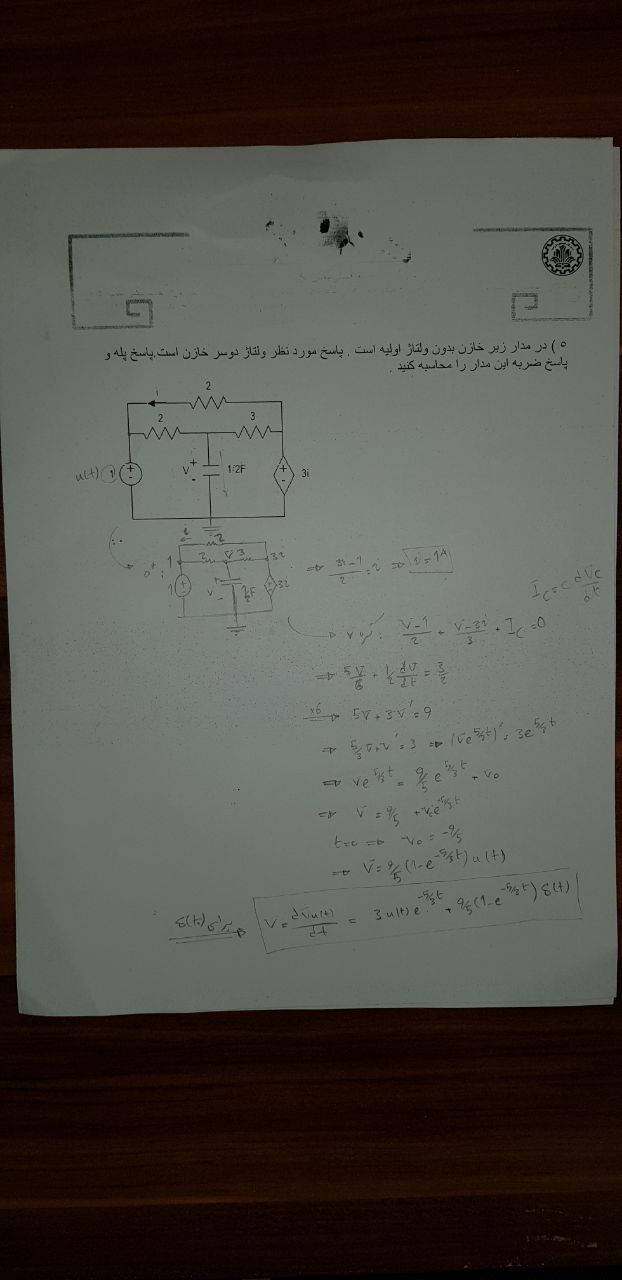 ۵ ) در مدار زیر خازن بدون ولتاژ اولیه است . پاسخ مورد نظر ولتاژ دوسر خازن است.پاسخ پله و
پاسخ ضربه این مدار را محاسبه کنید .
i
2
2
3
u(t) 1
+
-
V
+
-
1/2F
+
-
3i
i 2
0⁺:
1 2 V 3 3i
1 V + - ½F 3i
⇒ 3i-1/2 = i ⇒ i=1A
I_C = C dV_C/dt
گره V : V-1/2 + V-3i/3 + I_C = 0
⇒ 5V/6 + 1/2 dV/dt = 3/2
×6 ⇒ 5V + 3V' = 9
⇒ 5/3 V + V' = 3 ⇒ (Ve^{5/3t})' = 3e^{5/3t}
⇒ Ve^{5/3t} = 9/5 e^{5/3t} + V₀
⇒ V = 9/5 + V₀e^{-5/3t}
t=0 ⇒ V₀ = -9/5
⇒ V = 9/5 (1-e^{-5/3t}) u(t)
برای δ(t) ⇒ V = dVu(t)/dt = 3u(t)e^{-5/3t} + 9/5 (1-e^{-5/3t}) δ(t)